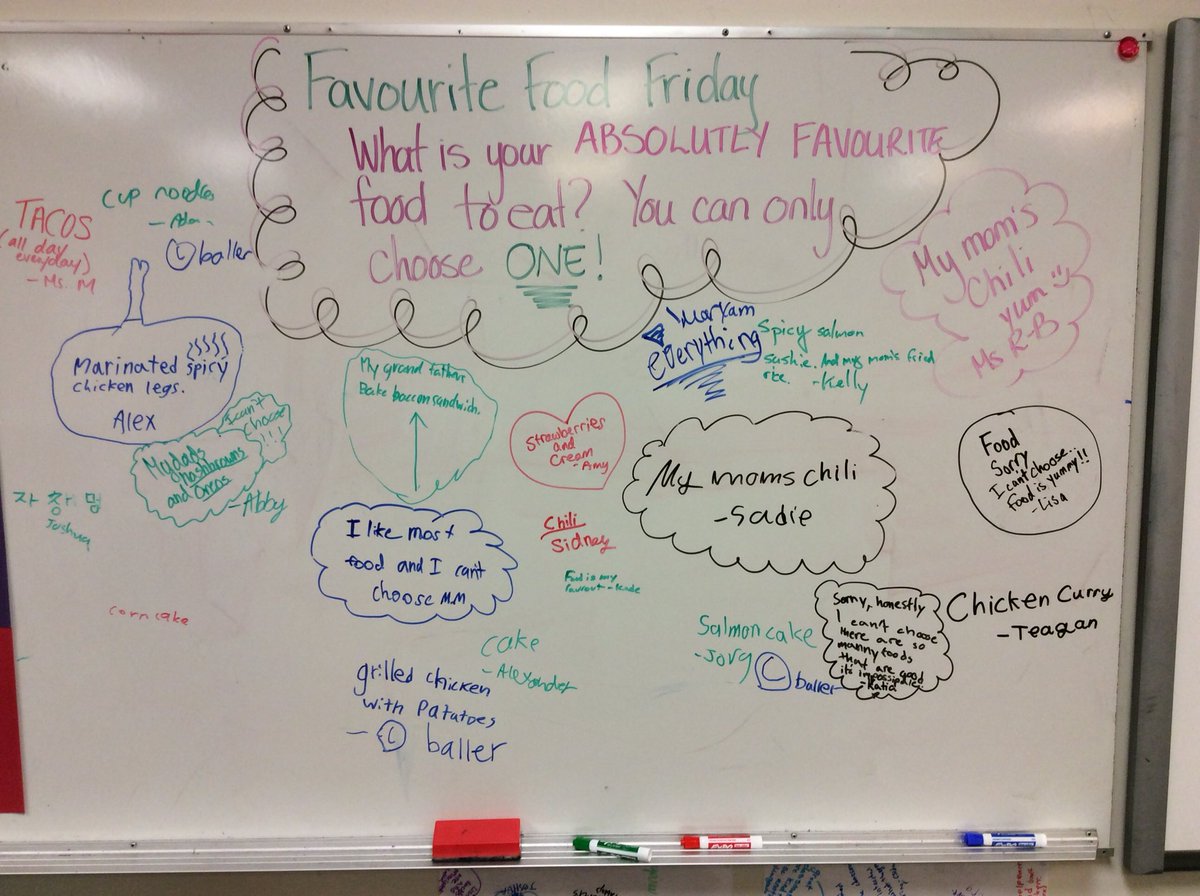 Favourite Food Friday
What is your ABSOLUTLY FAVOURITE
food to eat? You can only
choose ONE!
TACOS
(all day
everyday)
- Ms. M
cup noodles
C baller
Marinated spicy
chicken legs.
Alex
I can't
choose
!!!
My dads
hashbrowns
and Oreos
- Abby
Joshua
corn cake
My grand fathers
Bake bacon sandwich.
I like most
food and I can't
choose M.M
Strawberries
and
Cream
- Amy
Chili
Sidney
Food is my
cake
- Alexander
grilled chicken
with Patatoes
- C baller
Maryam
everything
Spicy salmon
sushie. And my mom's fried
rice. - Kelly
My mom's
Chili
yum
Ms R-B
My moms chili
- Sadie
Food
Sorry
I can't choose..
Food is yummy!!
- Lisa
Salmon cake
- Jory
C baller
Sorry, honestly
I can't choose
there are so
manny foods
that are good
- Katia
Chicken Curry
- Teagan
EXPO